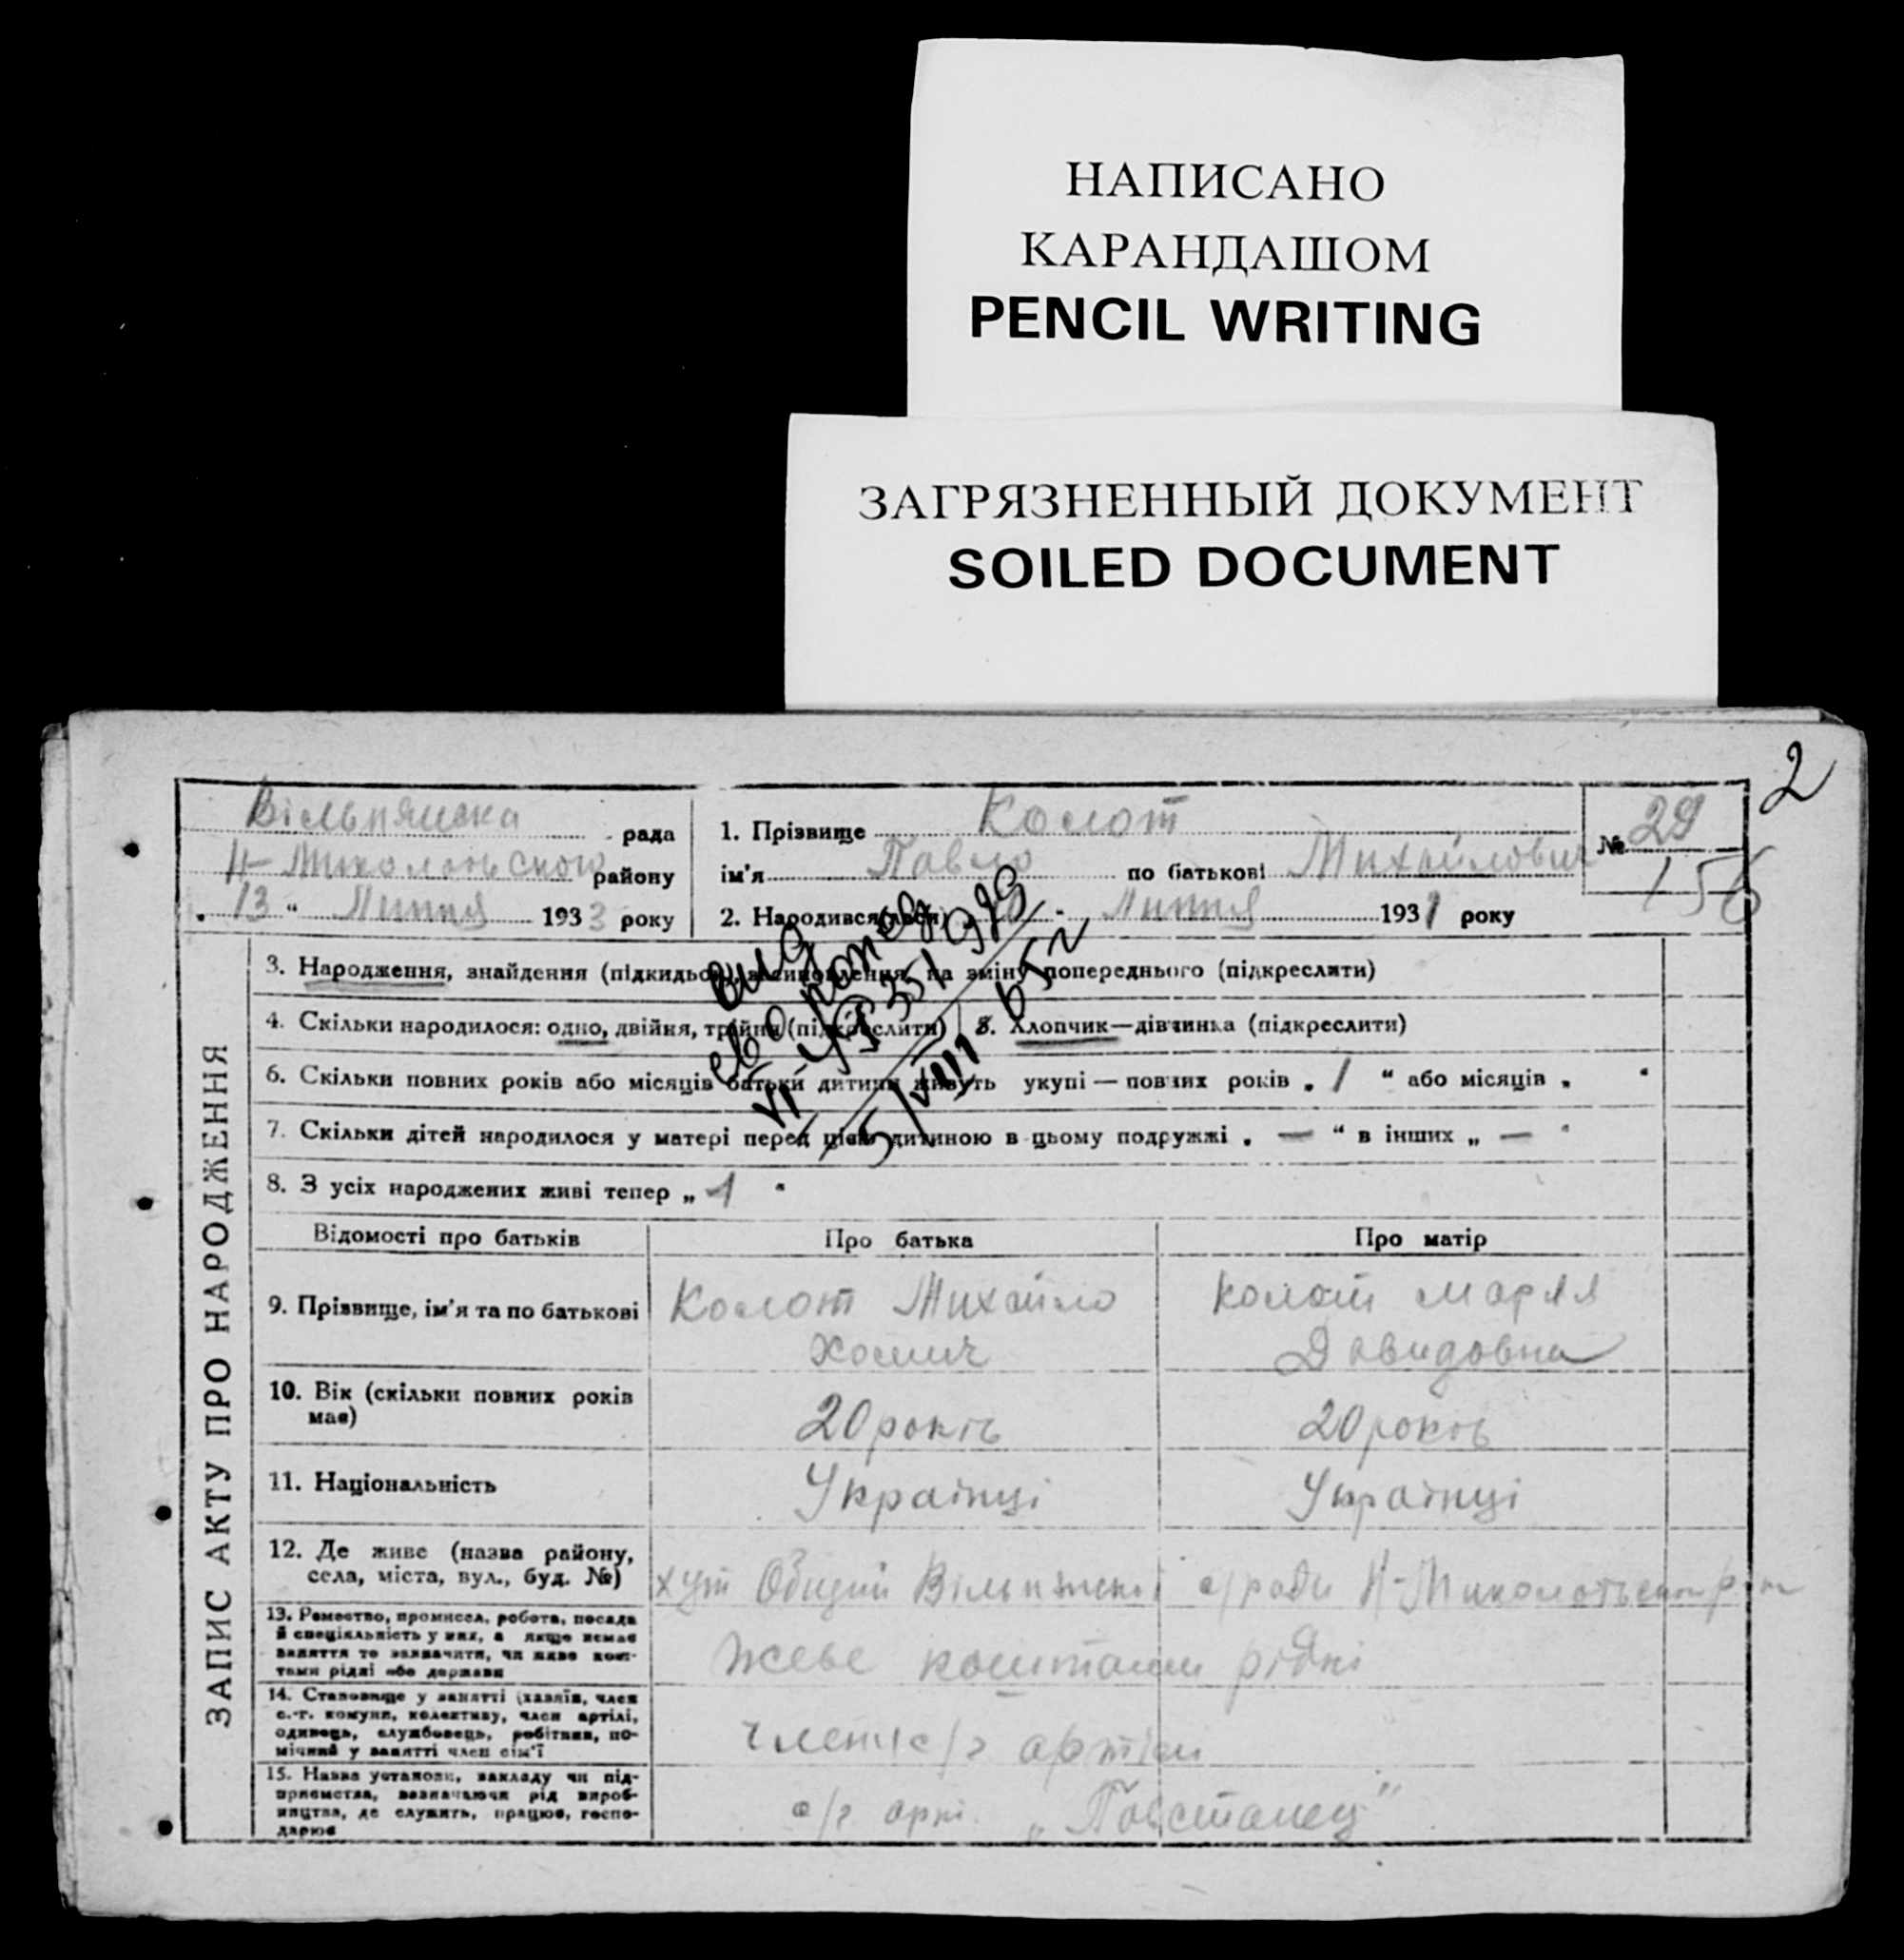 НАПИСАНО
КАРАНДАШОМ
PENCIL WRITING
ЗАГРЯЗНЕННЫЙ ДОКУМЕНТ
SOILED DOCUMENT
2
рада
району
" 13 " Липня 1933 року
1. Прізвище Колот
ім'я Павло по батькові Михайлович
2. Народився(лася) Липня 1931 року
№ 29
156
ЗАПИС АКТУ ПРО НАРОДЖЕННЯ
3. Народження, знайдення (підкидьок), всиновлення, на зміну попереднього (підкреслити)
4. Скільки народилося: одно, двійня, трійня (підкреслити)
5. Хлопчик—дівчинка (підкреслити)
6. Скільки повних років або місяців батьки дитини живуть укупі — повних років „ 1 “ або місяців „ “
7. Скільки дітей народилося у матері перед цією дитиною в цьому подружжі „ — “ в інших „ — “
8. З усіх народжених живі тепер „ 1 “
Відомості про батьків
Про батька
Про матір
9. Прізвище, ім'я та по батькові
Колот Михайло
Хомич
Колот Марія
Давидовна
10. Вік (скільки повних років
має)
20 років
20 років
11. Національність
Українці
Українці
12. Де живе (назва району,
села, міста, вул., буд. №)
хут Общий с/ради
13. Ремество, промисел, робота, посада
й спеціяльність у них, а якщо немає
заняття то зазначити, чи живе кош-
тами рідні або держави
Жеве коштами рідні
14. Становище у занятті (хазяїн, член
с.-г. комуни, колективу, член артілі,
одинець, службовець, робітник, по-
мічний у занятті член сім'ї
члени с/г артіли
15. Назва установи, закладу чи під-
приємства, зазначаючи рід вироб-
ництва, де служить, працює, госпо-
дарює
с/г арт. „Повстанец"